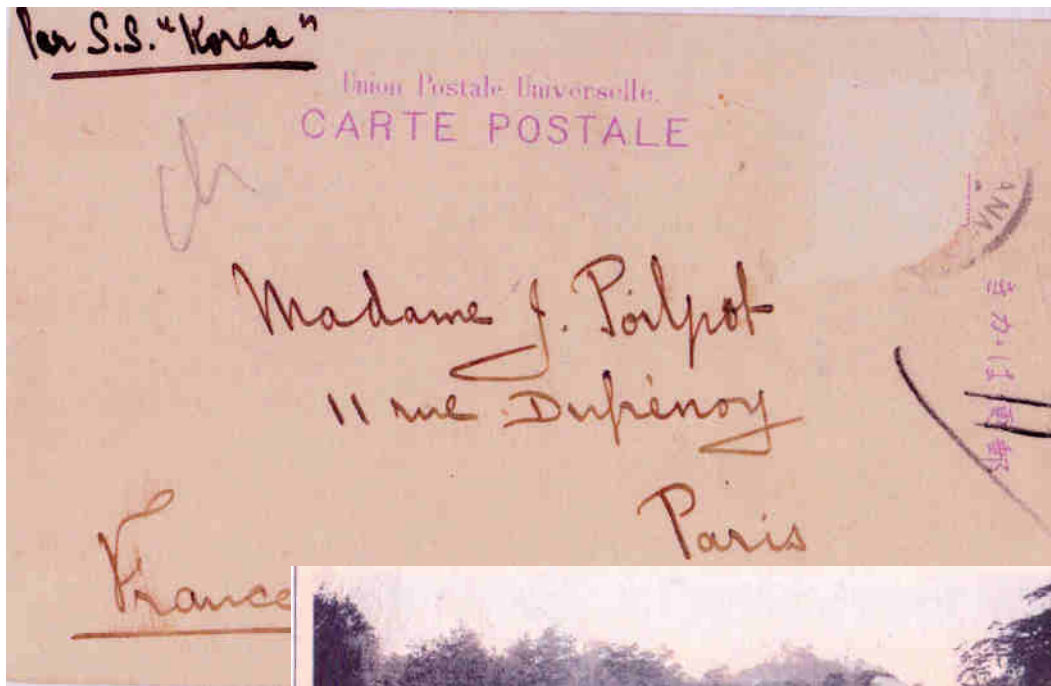 Par S.S. "Korea"
Union Postale Universelle.
CARTE POSTALE
ANA
きがは便郵
Madame J. Poilpot
11 rue Dufrénoy
Paris
France